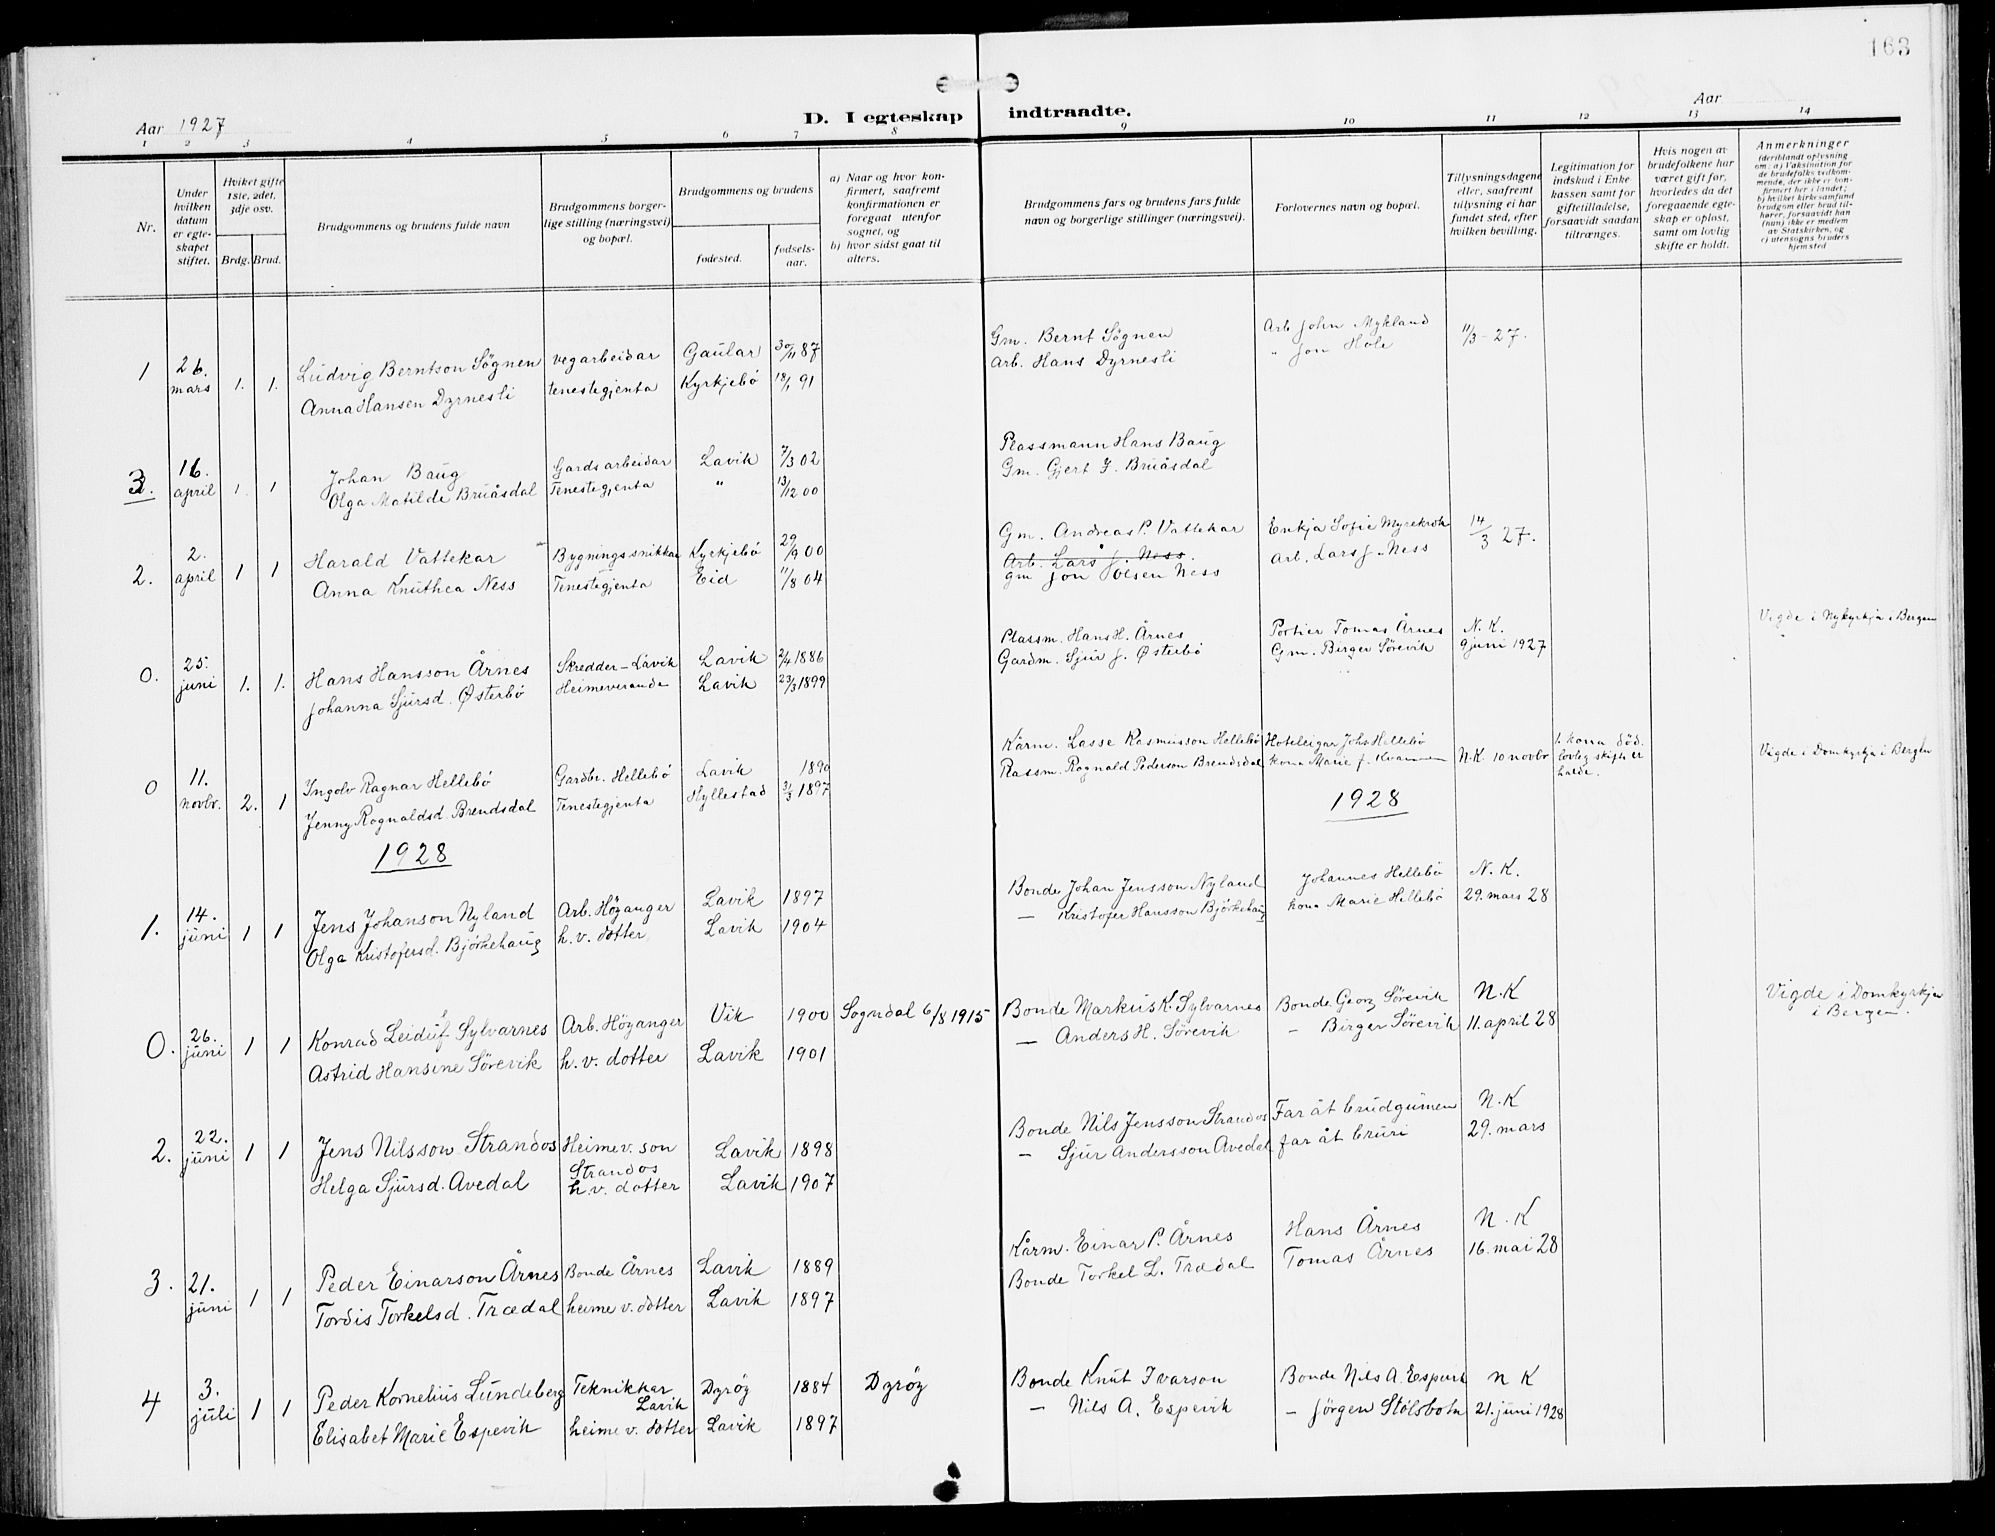 163
Aar 1927
D. I egteskap indtraadte.
Aar
1 2 3 4 5 6 7 8 9 10 11 12 13 14
Nr.
Under hvilken datum er egteskapet stiftet.
Hvilket gifte 1ste, 2det, 3dje osv.
Brdg. Brud.
Brudgommens og brudens fulde navn
Brudgommens borgerlige stilling (næringsvei) og bopæl.
Brudgommens og brudens
fødested.
fødselsaar.
a) Naar og hvor konfirmert, saafremt konfirmationen er foregaat utenfor sognet, og
b) hvor sidst gaat til alters.
Brudgommens fars og brudens fars fulde navn og borgerlige stillinger (næringsvei).
Forlovernes navn og bopæl.
Tillysningsdagene eller, saafremt tillysning ei har fundet sted, efter hvilken bevilling.
Legitimation for indskud i Enkekassen samt for giftetilladelse, forsaavidt saadan tiltrænges.
Hvis nogen av brudefolkene har været gift før, hvorledes da det foregaaende egteskap er opløst, samt om lovlig skifte er holdt.
Anmerkninger
(deriblandt oplysning om: a) Vaksination for de brudefolks vedkommende, der ikke er konfirmert her i landet; b) hvilket kirkesamfund brudgom eller brud tilhører, forsaavidt han (hun) ikke er medlem av Statskirken, og c) utensogns bruders hjemsted
1 26. mars 1. 1. Ludvig Berntson Søgnen vegarbeidar Gaular 30/11 87 Gm. Bernt Søgnen Arb John Mykland 11/3 - 27.
Anna Hansen Dyrnesli tenestegjenta Kyrkjebø 18/1 91 Arb. Hans Dyrnesli " Jon Hole
3. 16. april 1. 1 Johan Baug Gardsarbeidar Lavik 7/3 02 Plassmann Hans Baug
Olga Matilde Bruåsdal Tenestegjenta " 13/12 00 Gm. Gjert J. Bruåsdal
2. 2. april 1 1 Harald Vattekar Bygningssnikkar Kyrkjebø 29/9 00 Gm. Andreas P. Vattekar Enkja Sofie Myrekrok 14/3 27.
Arb. Lars J. Ness. Arb. Lars J. Ness
Anna Knuthea Ness Tenestegjenta Eid 11/8 04 gm Jon Olsen Ness
0. 25. juni 1. 1. Hans Hansson Årnes Skredder - Lavik Lavik 2/4 1886 Plassm. Hans H. Årnes Portier Tomas Årnes N. K. Vigde i Nykyrkja i Bergen
Johanna Sjursd. Østerbø Heimeverande Lavik 23/3 1899 Gardm. Sjur J. Østerbø Gm. Birger Sørevik 9 juni 1927
0 11. novbr. 2. 1 Ingolv Ragnar Hellebø Gardbr. Hellebø Lavik 1890 Kårm. Lasse Rasmusson Hellebø Hoteleigar Johs Hellebø N.K. 10 novbr 1. kona død. lovleg skifte er halde. Vigde i Domkyrkja i Bergen
Jenny Rognaldsd. Brendsdal Tenestegjenta Hyllestad 31/3 1897 Plassm. Rognald Pederson Brendsdal kona Marie J. Kvammen
1928 1928
1. 14. juni 1 1 Jens Johanson Nyland Arb. Höyanger Lavik 1897 Bonde Johan Jensson Nyland Johannes Hellebø N. K.
Olga Kristofersd. Bjørkehaug h. v. dotter Lavik 1904 — Kristofer Hansson Bjørkehaug kona Marie Hellebø 29. mars 28
0. 26. juni 1 1 Konrad Leiduf Sylvarnes Arb. Höyanger Vik 1900 Sogndal 6/8 1915 Bonde Markus K. Sylvarnes Bonde Georg Sørevik N.K Vigde i Domkyrkja i Bergen.
Astrid Hansine Sørevik h. v. dotter Lavik 1901 — Anders H. Sørevik — Birger Sørevik 11. april 28
2. 22. juni 1 1 Jens Nilsson Strandos Heimev. son Strandos Lavik 1898 Bonde Nils Jensson Strandos Far åt brudgumen N. K
Helga Sjursd. Avedal h.v. dotter Lavik 1907 — Sjur Andersson Avedal far åt bruri 29. mars
3. 21. juni 1 1 Peder Einarson Årnes Bonde Årnes Lavik 1889 Kårm. Einar P. Årnes Hans Årnes N. K
Tordis Torkelsd. Trædal heime v. dotter Lavik 1897 Bonde Torkel L. Trædal Tomas Årnes 16. mai 28
4 3. juli 1 1 Peder Kornelius Lundeberg Teknikkar Lavik Dyröy 1884 Dyröy Bonde Knut Ivarson Bonde Nils A. Espevik N K
Elisabet Marie Espevik heime v. dotter Lavik 1897 — Nils A. Espevik — Jørgen Stølsbotn 21. juni 1928